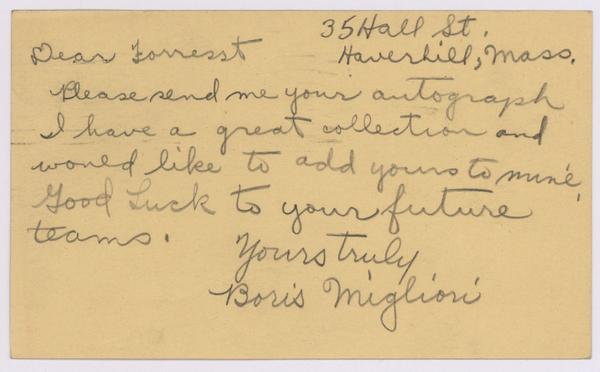 35 Hall St.
Dear Forresst Haverhill, Mass.
Please send me your autograph
I have a great collection and
would like to add yours to mine.
Good Luck to your future
teams.
Yours truly
Boris Migliori